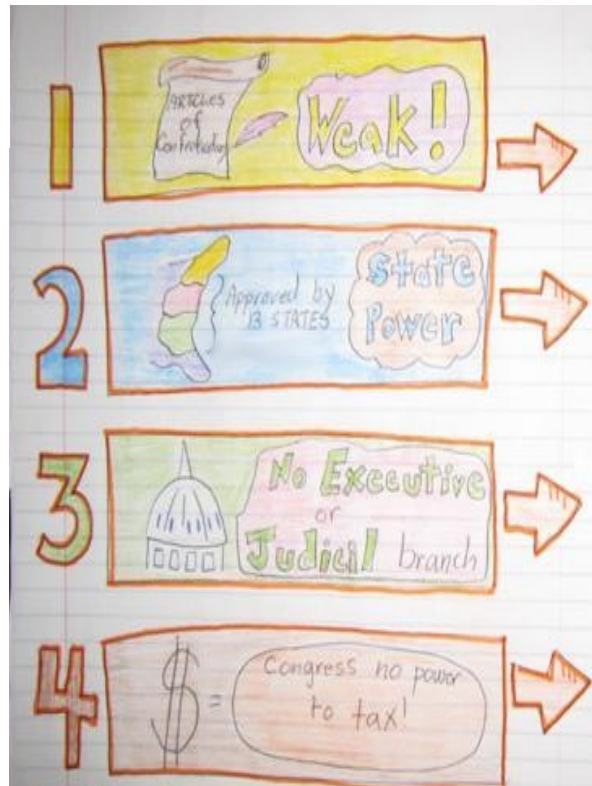 1
ARTICLES
of
Confederation
Weak!
2
Approved by
13 STATES
State
Power
3
No Executive
or
Judicil branch
4
$ =
Congress no power
to tax!